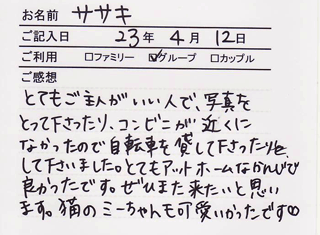 お名前 ササキ
ご記入日 23年 4月 12日
ご利用 □ファミリー ☑グループ □カップル
ご感想
とてもご主人がいい人で、写真を
とって下さったり、コンビニが近くに
なかったので自転車を貸して下さったりを
して下さいました。とてもアットホームなかんじで
良かったです。ぜひまた来たいと思い
ます。猫のミーちゃんも可愛いかったです♡